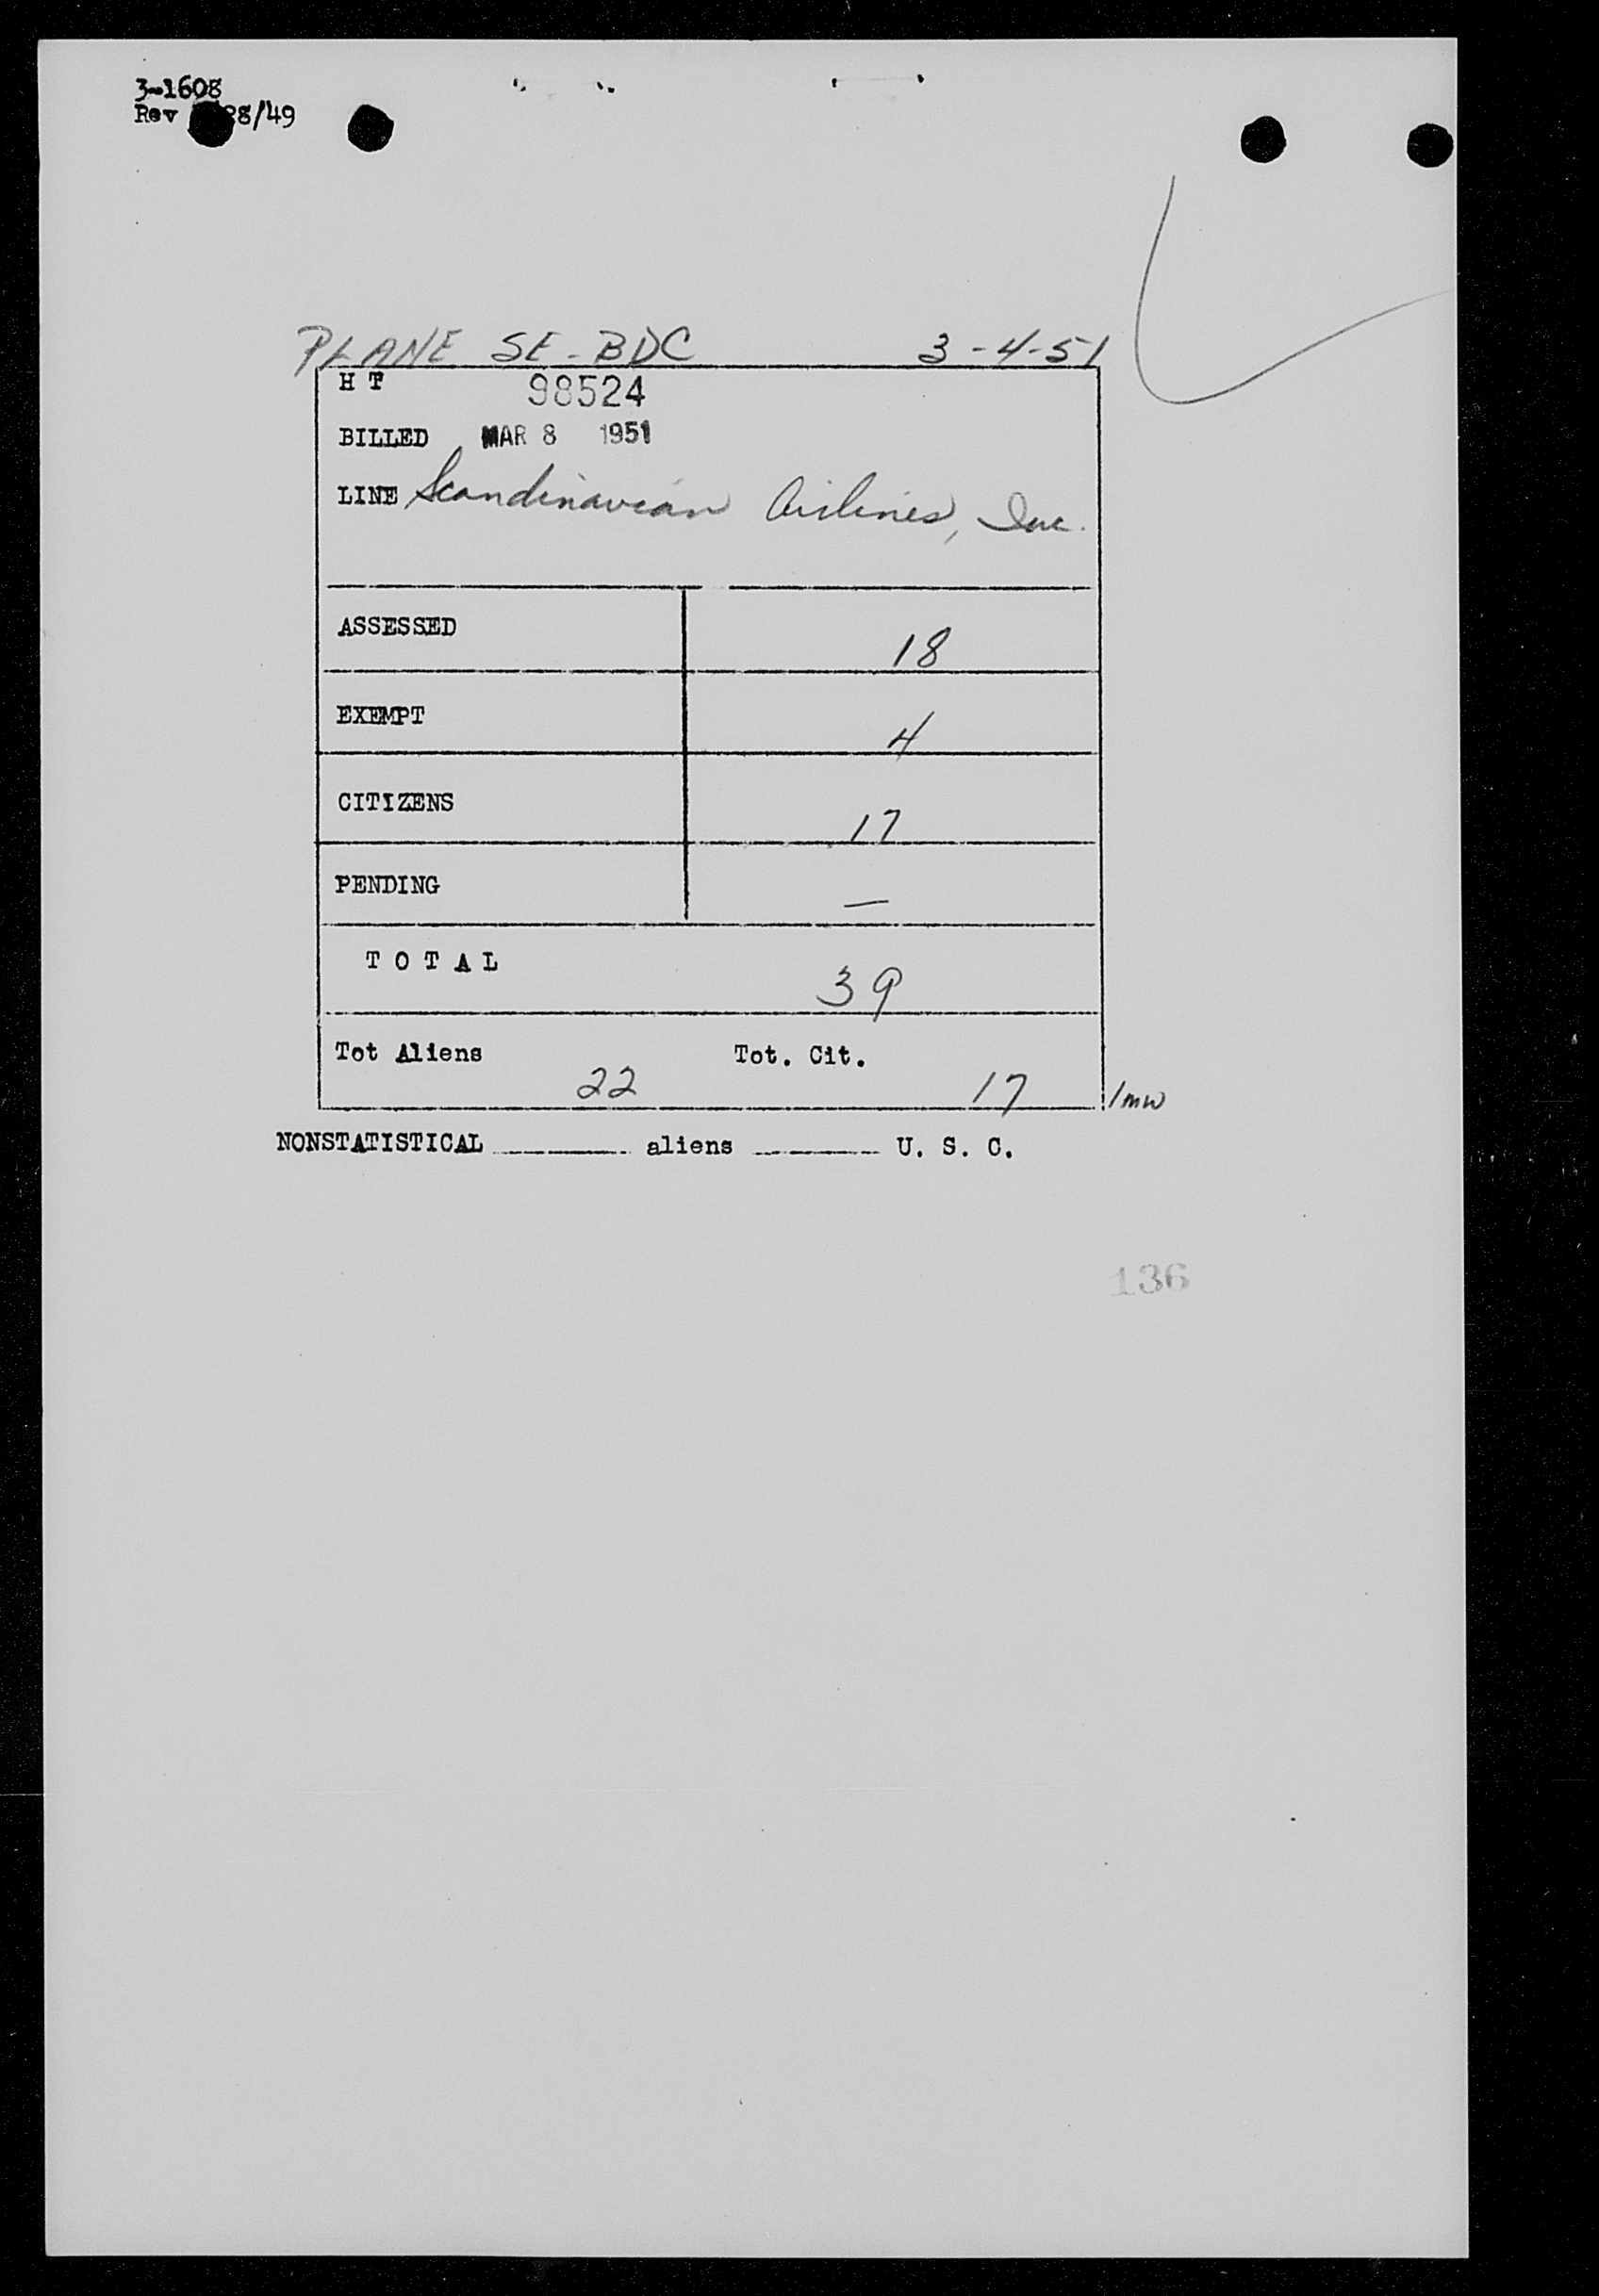 3-1608
Rev 28/49
PLANE SE-BDC 3-4-51
H T 98524
BILLED MAR 8 1951
LINE Scandinavian Airlines, Inc.
ASSESSED 18
EXEMPT 4
CITIZENS 17
PENDING —
TOTAL 39
Tot Aliens 22 Tot. Cit. 17
/mw
NONSTATISTICAL ---------- aliens ---------- U. S. C.
136